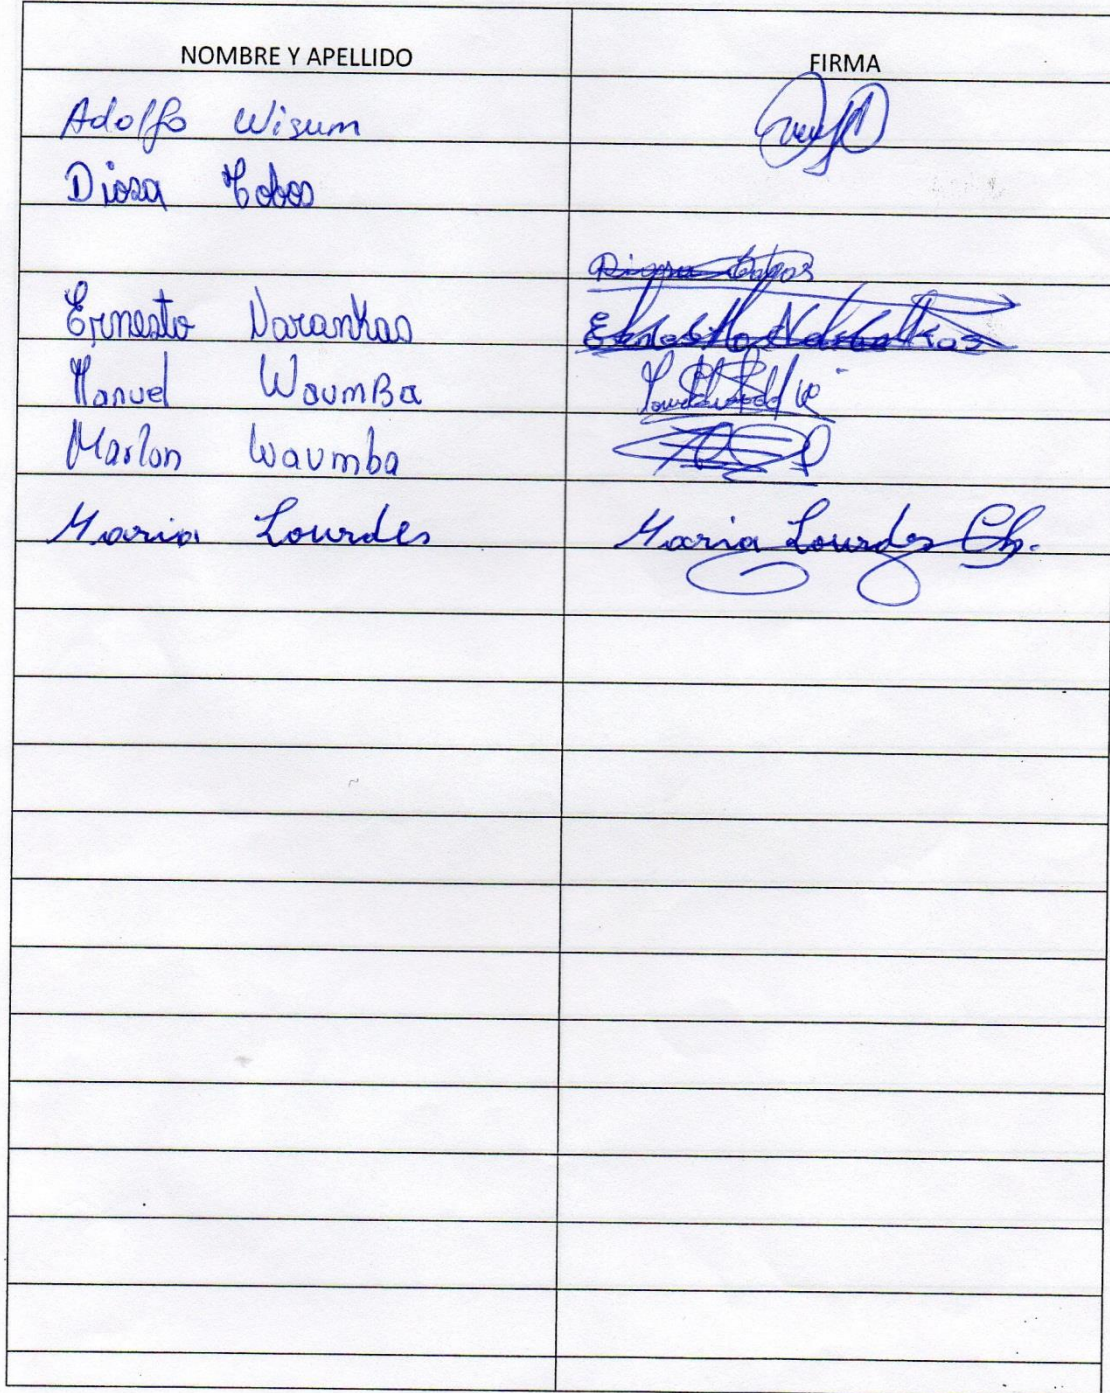 NOMBRE Y APELLIDO FIRMA
Adolfo Wisum
Diosa Cobos
Ernesto Narankas
Manuel Waumba
Marlon Waumba
Maria Lourdes Maria Lourdes Ch.